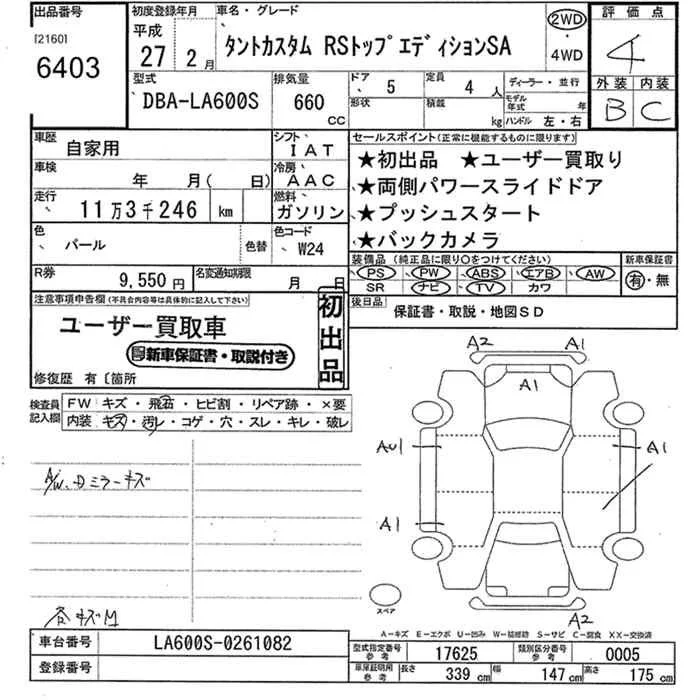 出品番号
[2160]
6403
初度登録年月
平成
27 2月
車名・グレード
タントカスタム RSトップエディションSA
2WD
・
4WD
評価点
4
外装 内装
B C
型式
DBA-LA600S
排気量
660 CC
ドア 5
形状
定員 4 人
積載 kg
ディーラー・並行
モデル年式 年
ハンドル 左・右
車歴
自家用
シフト
IAT
車検
年 月( 日)
冷房
AAC
走行
11万3千246 km
燃料
ガソリン
色
パール
色替
色コード
W24
R券
9,550円
名変通知期限
月 日
セールスポイント(正常に機能するものに限ります)
★初出品 ★ユーザー買取り
★両側パワースライドドア
★プッシュスタート
★バックカメラ
装備品(純正品に限り○をつけてください)
PS PW ABS エアB AW
SR ナビ TV カワ
新車保証書
有・無
後日品
保証書・取説・地図SD
注意事項申告欄(不具合内容等は具体的に記入して下さい)
ユーザー買取車
新車保証書・取説付き
初出品
修復歴 有〔箇所
検査員記入欄
FW キズ・飛石・ヒビ割・リペア跡・×要
内装 キズ・汚レ・コゲ・穴・スレ・キレ・破レ
A/W、Dミラーキズ
各キズM
A2 A1
A1
AU1 A1
A1
A2
スペア
A−キズ E−エクボ U−凹み W−補修跡 S−サビ C−腐食 XX−交換済
車台番号
LA600S-0261082
登録番号
型式指定番号 参考
17625
類別区分番号 参考
0005
車庫証明用 参考
長さ 339 cm 幅 147 cm 高さ 175 cm